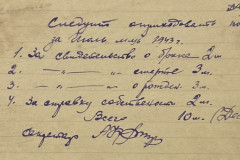 Следует оприходовать
за Июль м-ц 1943 г.
1. За свидетельство о браке 2 м.
2. —〃— —〃— смерти 3 м.
3. —〃— —〃— о рожден. 3 м.
4. За справку собственности 2 м.
Всего 10 м. (Дес
Секретарь